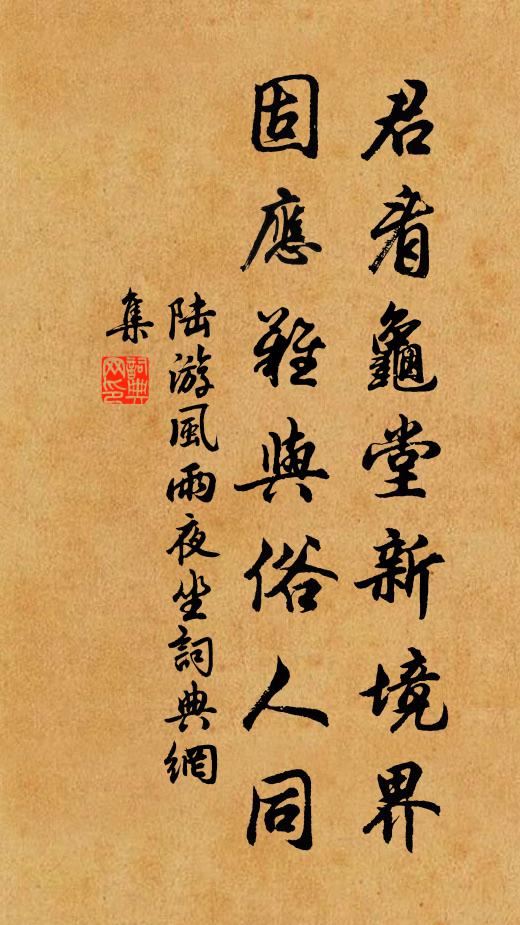 君看龜堂新境界
固應難與俗人同
陸游風雨夜坐詞典網
集
詞典网印